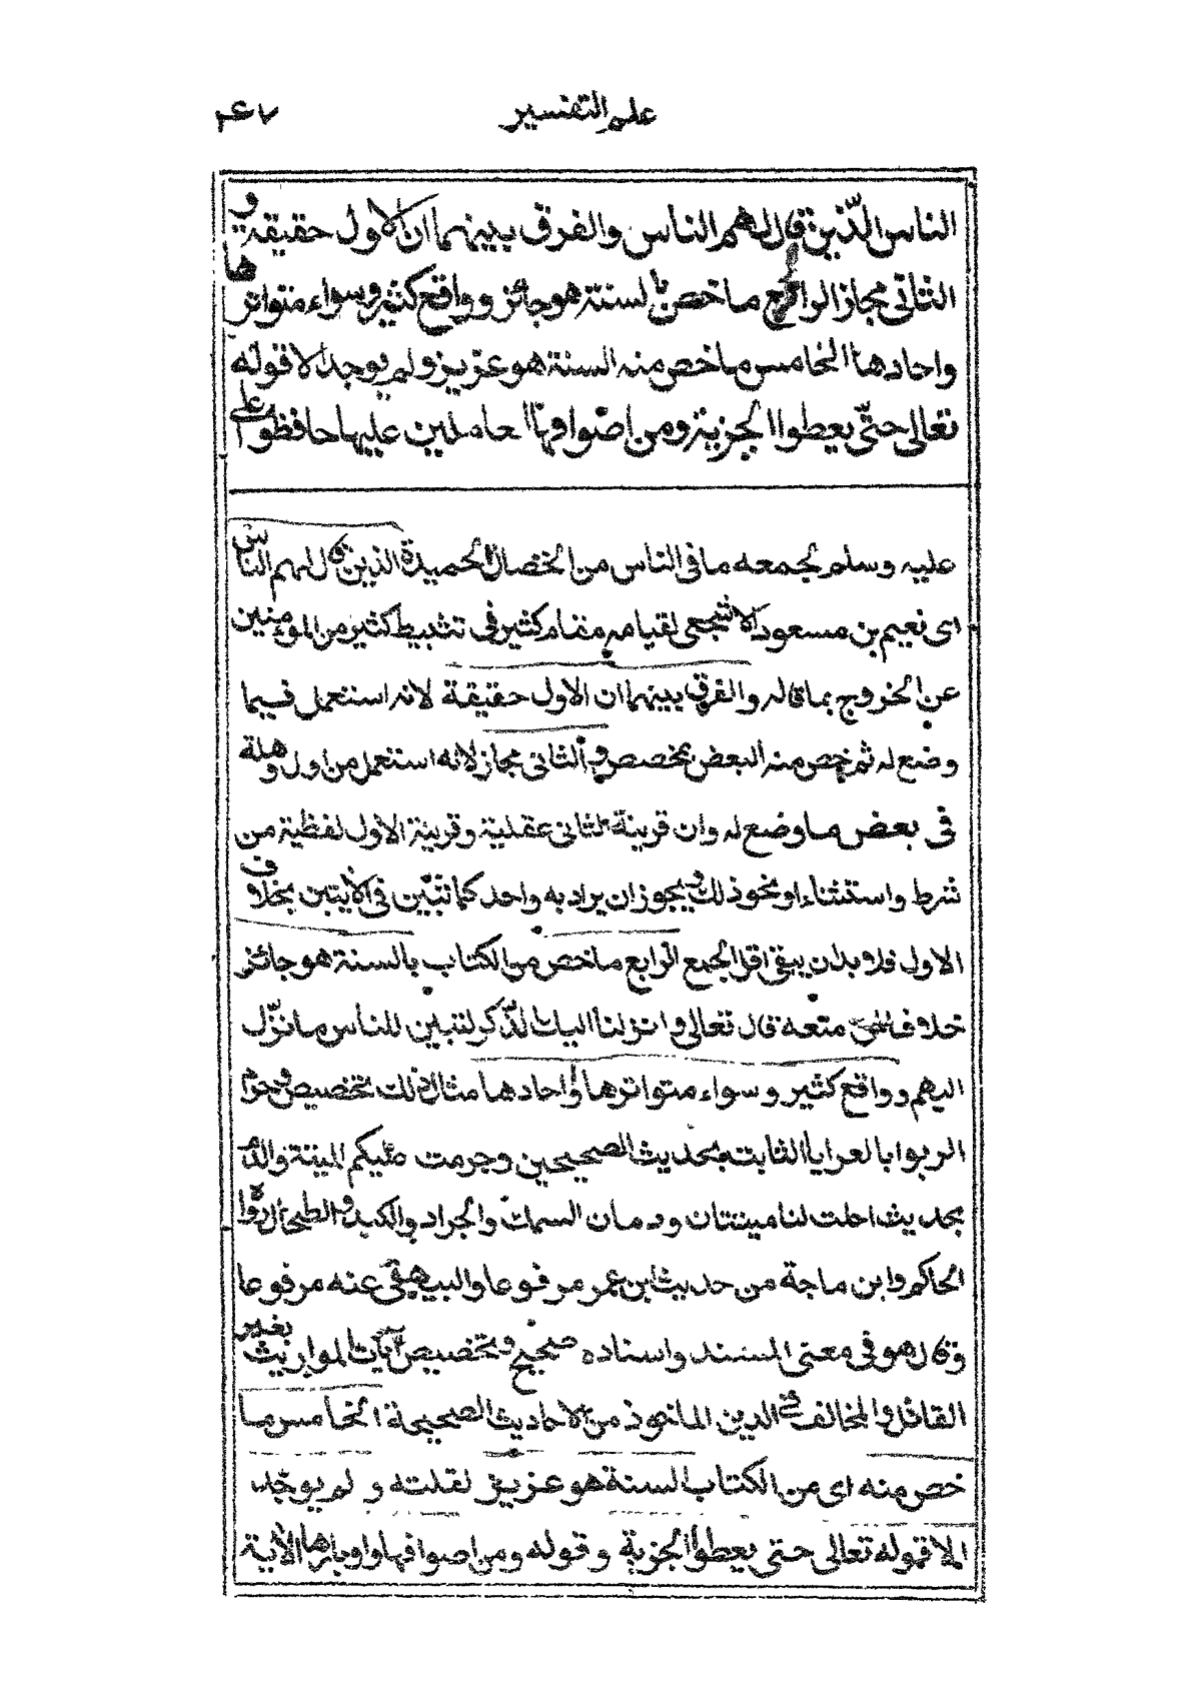 علم التفسير ٤٧
الناس الذين قال لهم الناس والفرق بينهما ان الاول حقيقة و
الثاني مجاز الرابع ما خص بالسنة هو جائز وواقع كثير وسواء متواترها
واحادها الخامس ما خص منه السنة هو عزيز ولم يوجد الا قوله
تعالى حتّى يعطوا الجزية ومن اصوافها العاملين عليها حافظوا على
عليه وسلم لجمعه ما فى الناس من الخصال الحميدة الذين قال لهم الناس
اى نعيم بن مسعود الاشجعى لقيامه مقام كثير فى تثبيط كثير من المؤمنين
عن الخروج بما قاله والفرق بينهما ان الاول حقيقة لانه استعمل فيما
وضع له ثم خص منه البعض بمخصص والثانى مجاز لانه استعمل من اول وهلة
فى بعض ما وضع له وان قرينة الثانى عقلية وقرينة الاول لفظية من
شرط واستثناء او نحو ذلك ويجوز ان يراد به واحد كما تبيّن فى الأيتين بخلاف
الاول فلا بد ان يبقى اقل الجمع الرابع ما خص من الكتاب بالسنة هو جائز
خلافا لمن منعه قال تعالى وانزلنا اليك الذّكر لتبين للناس ما نزّل
اليهم وواقع كثير وسواء متواترها وأحادها مثال ذلك تخصيص وحرم
الربوا بالعرايا الثابتة بحديث الصحيحين وحرمت عليكم الميتة والدم
بحديث احلت لنا ميتتان ودمان السمك والجراد والكبد والطحال رواه
الحاكم وابن ماجة من حديث ابن عمر مرفوعا والبيهقى عنه مرفوعا
وقال هو فى معنى المسند واسناده صحيح وتخصيص آيات المواريث بغير
القاتل والمخالف فى الدين الماخوذ من الاحاديث الصحيحة الخامس ما
خص منه اى من الكتاب السنة هو عزيز لقلته ولم يوجد
الا قوله تعالى حتى يعطوا الجزية وقوله ومن اصوافها واوبارها الأية